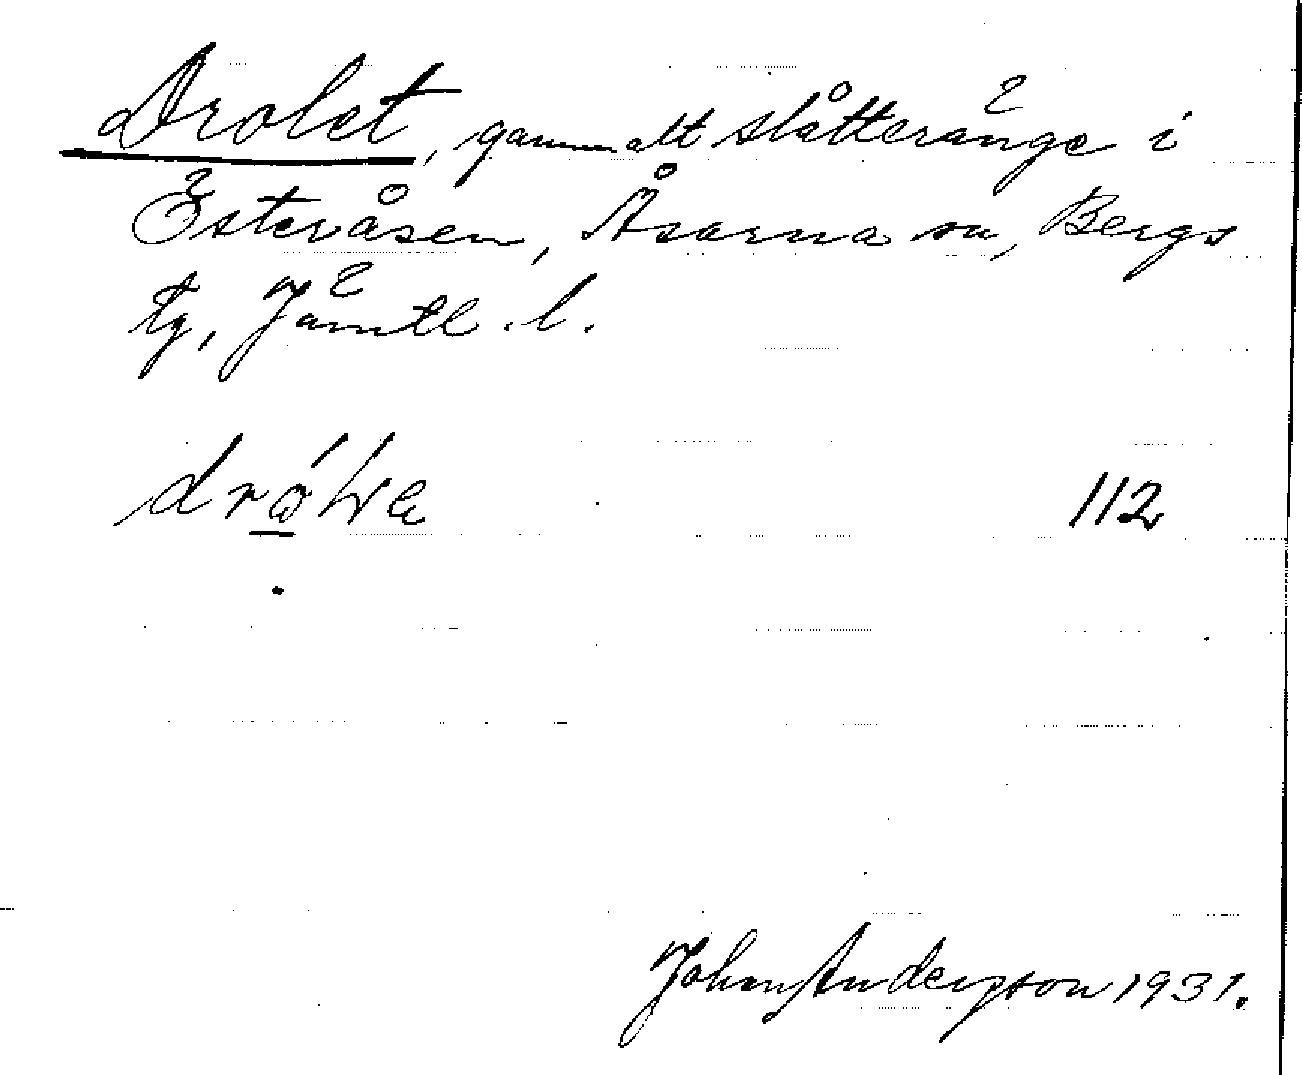 Drolet, gammalt slåtteränge i
Österåsen, Åsarna sn, Bergs
tg, Jämtl. l.
112
Johan Andersson 1931.